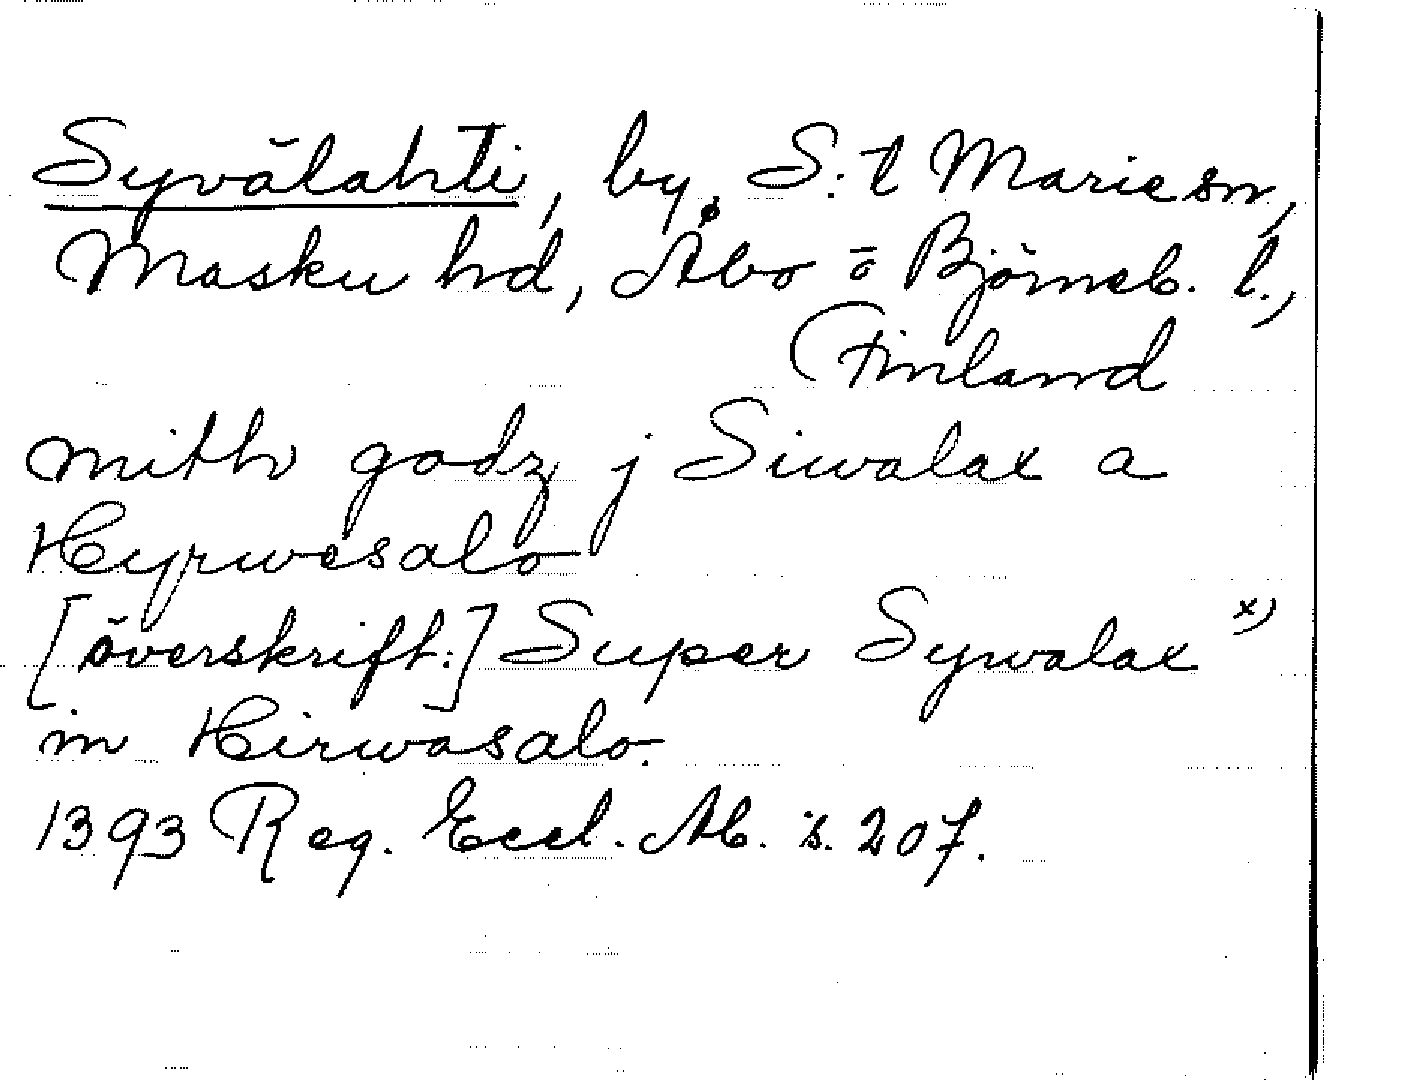 Syvälahti, by, S:t Marie sn,
Masku hd, Åbo o Björneb. l.,
Finland
mith godz j Siwalax a
Hyrwesalo
[överskrift:] Super Sywalax x)
in Hirwasalo.
1393 Reg. Eccl. Ab. s. 207.